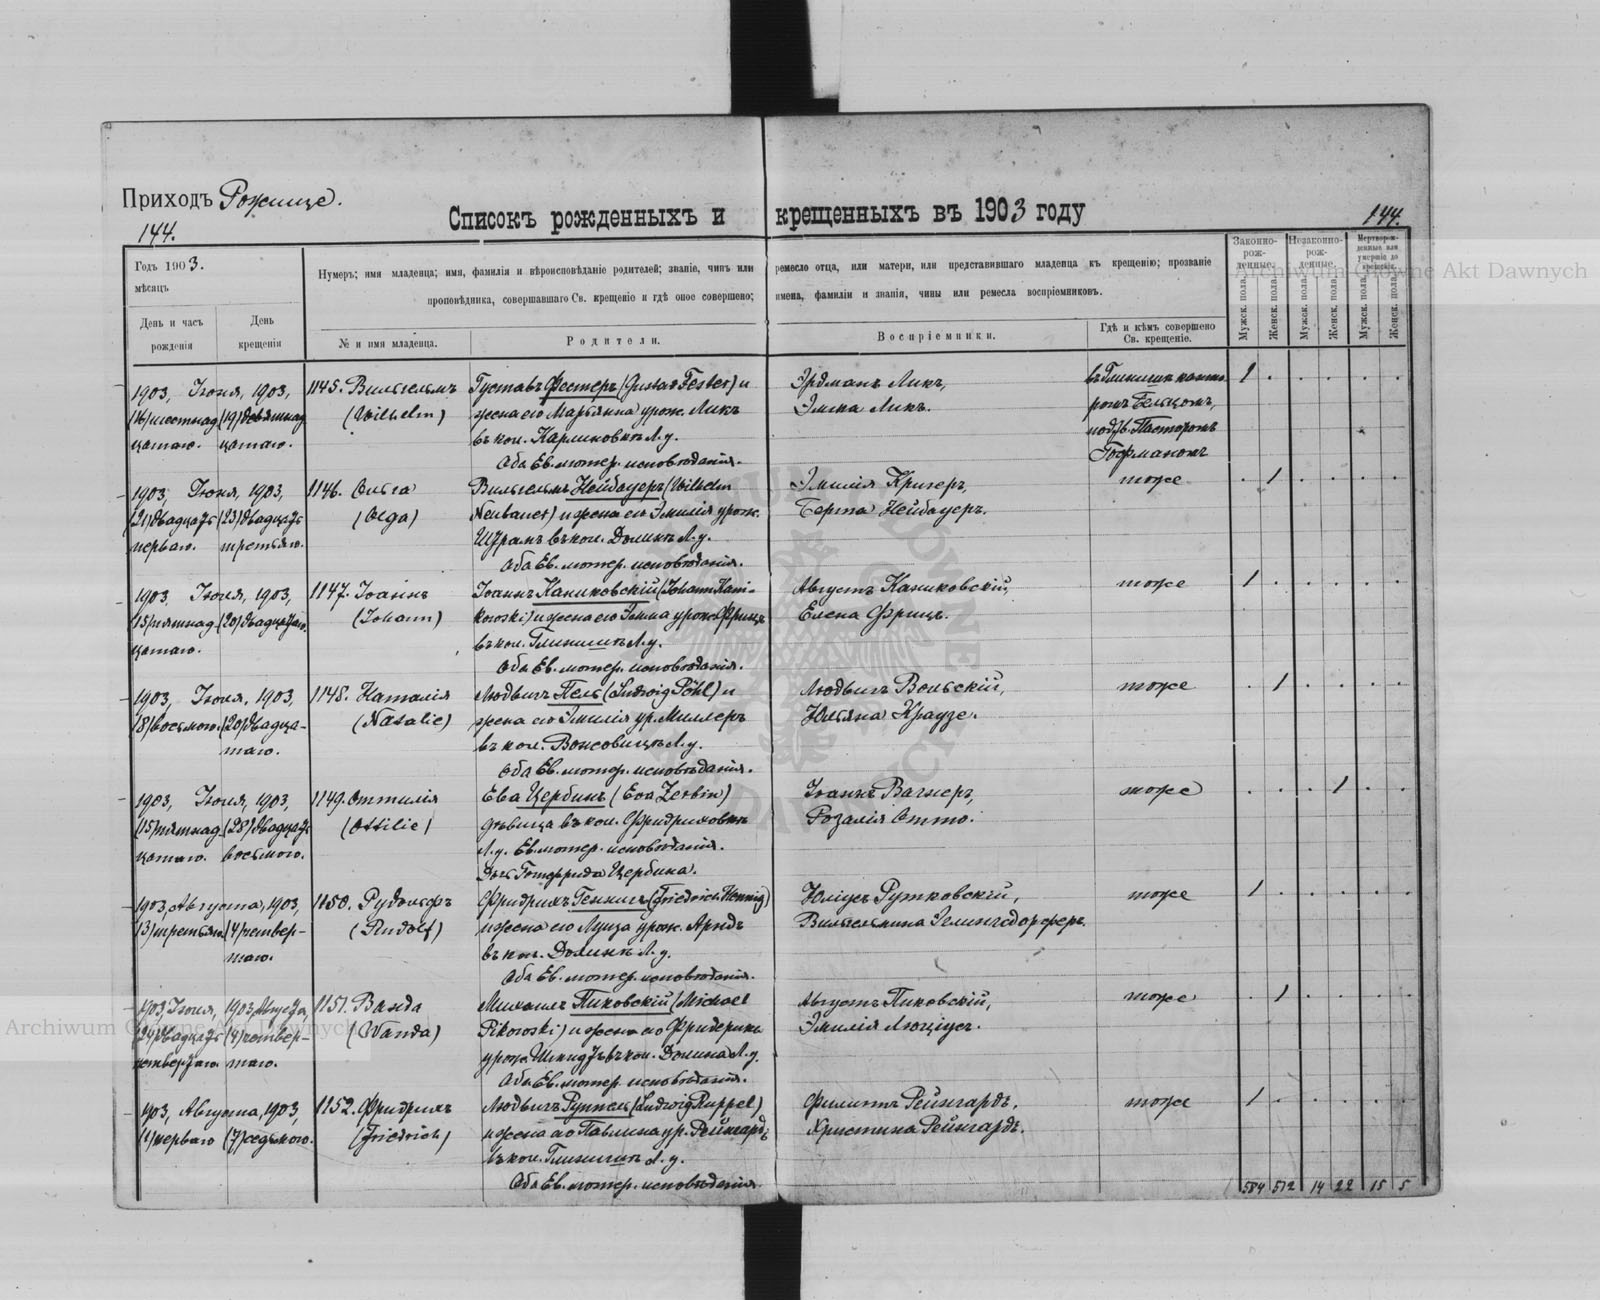 Приходъ Рожище.
144.
Списокъ рожденныхъ и крещенныхъ въ 1903 году
144.
Годъ 1903.
мѣсяцъ
День и часъ рожденія
День крещенія
Нумеръ; имя младенца; имя, фамилія и вѣроисповѣданіе родителей; званіе, чинъ или ремесло отца, или матери, или представившаго младенца къ крещенію; прозваніе
проповѣдника, совершавшаго Св. крещеніе и гдѣ оное совершено; имена, фамиліи и званія, чины или ремесла воспріемниковъ.
№ и имя младенца.
Родители.
Воспріемники.
Гдѣ и кѣмъ совершено Св. крещеніе.
Законно-рож-денные.
Незаконно-рож-денные.
Мертворож-денные или умершіе до крещенія.
Мужск. пола.
Женск. пола.
Мужск. пола.
Женск. пола.
Мужск. пола.
Женск. пола.
Archiwum Główne Akt Dawnych
1903, Іюня, 1903, 1145. Вильгельмъ Густавъ Фестеръ (Gustav Fester) и Эрдманъ Ликъ, 1
(16) шестнад (19) девятнад (Wilhelm) жена его Марьянна урож. Ликъ Эмма Ликъ.
цатаго. цатаго. въ кол. Л. у.
подзв. Пасторомъ
Оба Ев. лютер. исповѣданія. Гофманомъ
1903, Іюня, 1903, 1146. Ольга Вильгельмъ Нейбауеръ (Wilhelm Эмилія Кригеръ, тоже 1
(21) двадцать (23) двадцать (Olga) Neubauer) и жена его Эмилія урож. Берта Нейбауеръ.
перваго. третьяго. въ кол. Л. у.
Оба Ев. лютер. исповѣданія.
1903, Іюня, 1903, 1147. Іоаннъ Іоаннъ Каниковскій (Johann Kani- Августъ Каниковскій, тоже 1
(15) пятнад (20) двадцатаго. (Johann) kowski) и жена его Эмма урож. Фрицъ Елена Фрицъ.
цатаго. въ кол. Л. у.
Оба Ев. лютер. исповѣданія.
1903, Іюня, 1903, 1148. Наталія Людвигъ Пель (Ludwig Pöhl) и Людвигъ Вольскій, тоже 1
(8) восьмого. (20) двадца- (Natalie) жена его Эмилія ур. Миллеръ Юльяна Краузе.
таго. въ кол. Л. у.
Оба Ев. лютер. исповѣданія.
1903, Іюня, 1903, 1149. Оттилія Ева Цербинъ (Eva Zerbin) Іоаннъ Вагнеръ, тоже 1
(15) пятнад (28) двадцать (Ottilie) дѣвица въ кол. Фридриховкѣ Розалія Отто.
цатаго. восьмого. Л. у. Ев. лютер. исповѣданія.
Дочь Готфрида Цербина.
1903, Августа, 1903, 1150. Рудольфъ Фридрихъ Геннигъ (Friedrich Hennig) Юліусъ Рутковскій, тоже 1
(3) третьяго (4) четвер- (Rudolf) и жена его Луиза урож. Арндъ Вильгельмина
таго. въ кол. Л. у.
Оба Ев. лютер. исповѣданія.
1903, Іюля, 1903, Августа, 1151. Ванда Михаилъ Пиковскій (Michael Августъ Пиковскій, тоже 1
(24) двадцать (4) четвер- (Wanda) Pikowski) и жена его Фридерика Эмилія
четвертаго. таго. урож. Шмидтъ въ кол. Л. у.
Оба Ев. лютер. исповѣданія.
Archiwum Główne Akt Dawnych
1903, Августа, 1903, 1152. Фридрихъ Людвигъ Руппель (Ludwig Ruppel) Филиппъ Рейнгардъ, тоже 1
(1) перваго (7) седьмого. (Friedrich) и жена его Павлина ур. Рейнгардъ Христина Рейнгардъ.
въ кол. Л. у.
Оба Ев. лютер. исповѣданія.
584 512 14 22 15 5